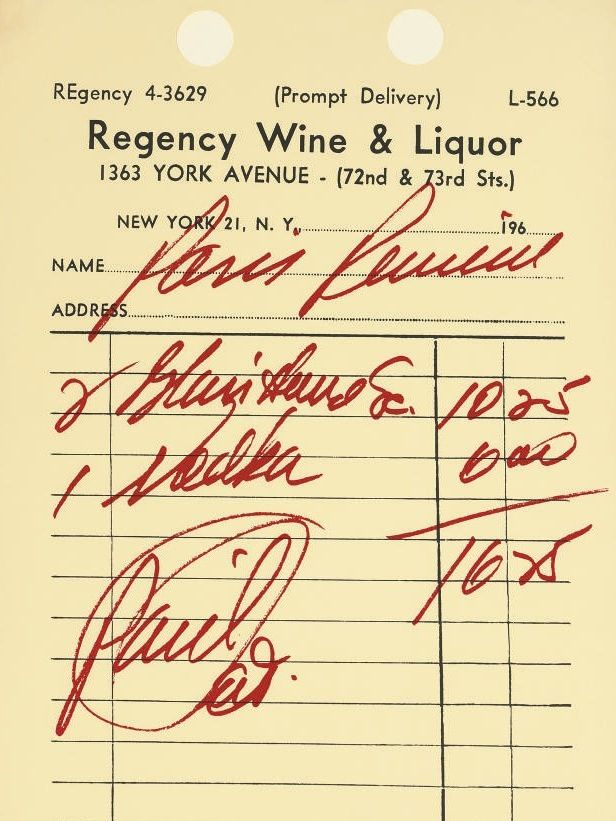 REgency 4-3629 (Prompt Delivery) L-566
Regency Wine & Liquor
1363 YORK AVENUE - (72nd & 73rd Sts.)
NEW YORK 21, N. Y., 196
NAME Paris
ADDRESS
2 Sc. 10 25
1 Vodka 6 00
16 25
Paid